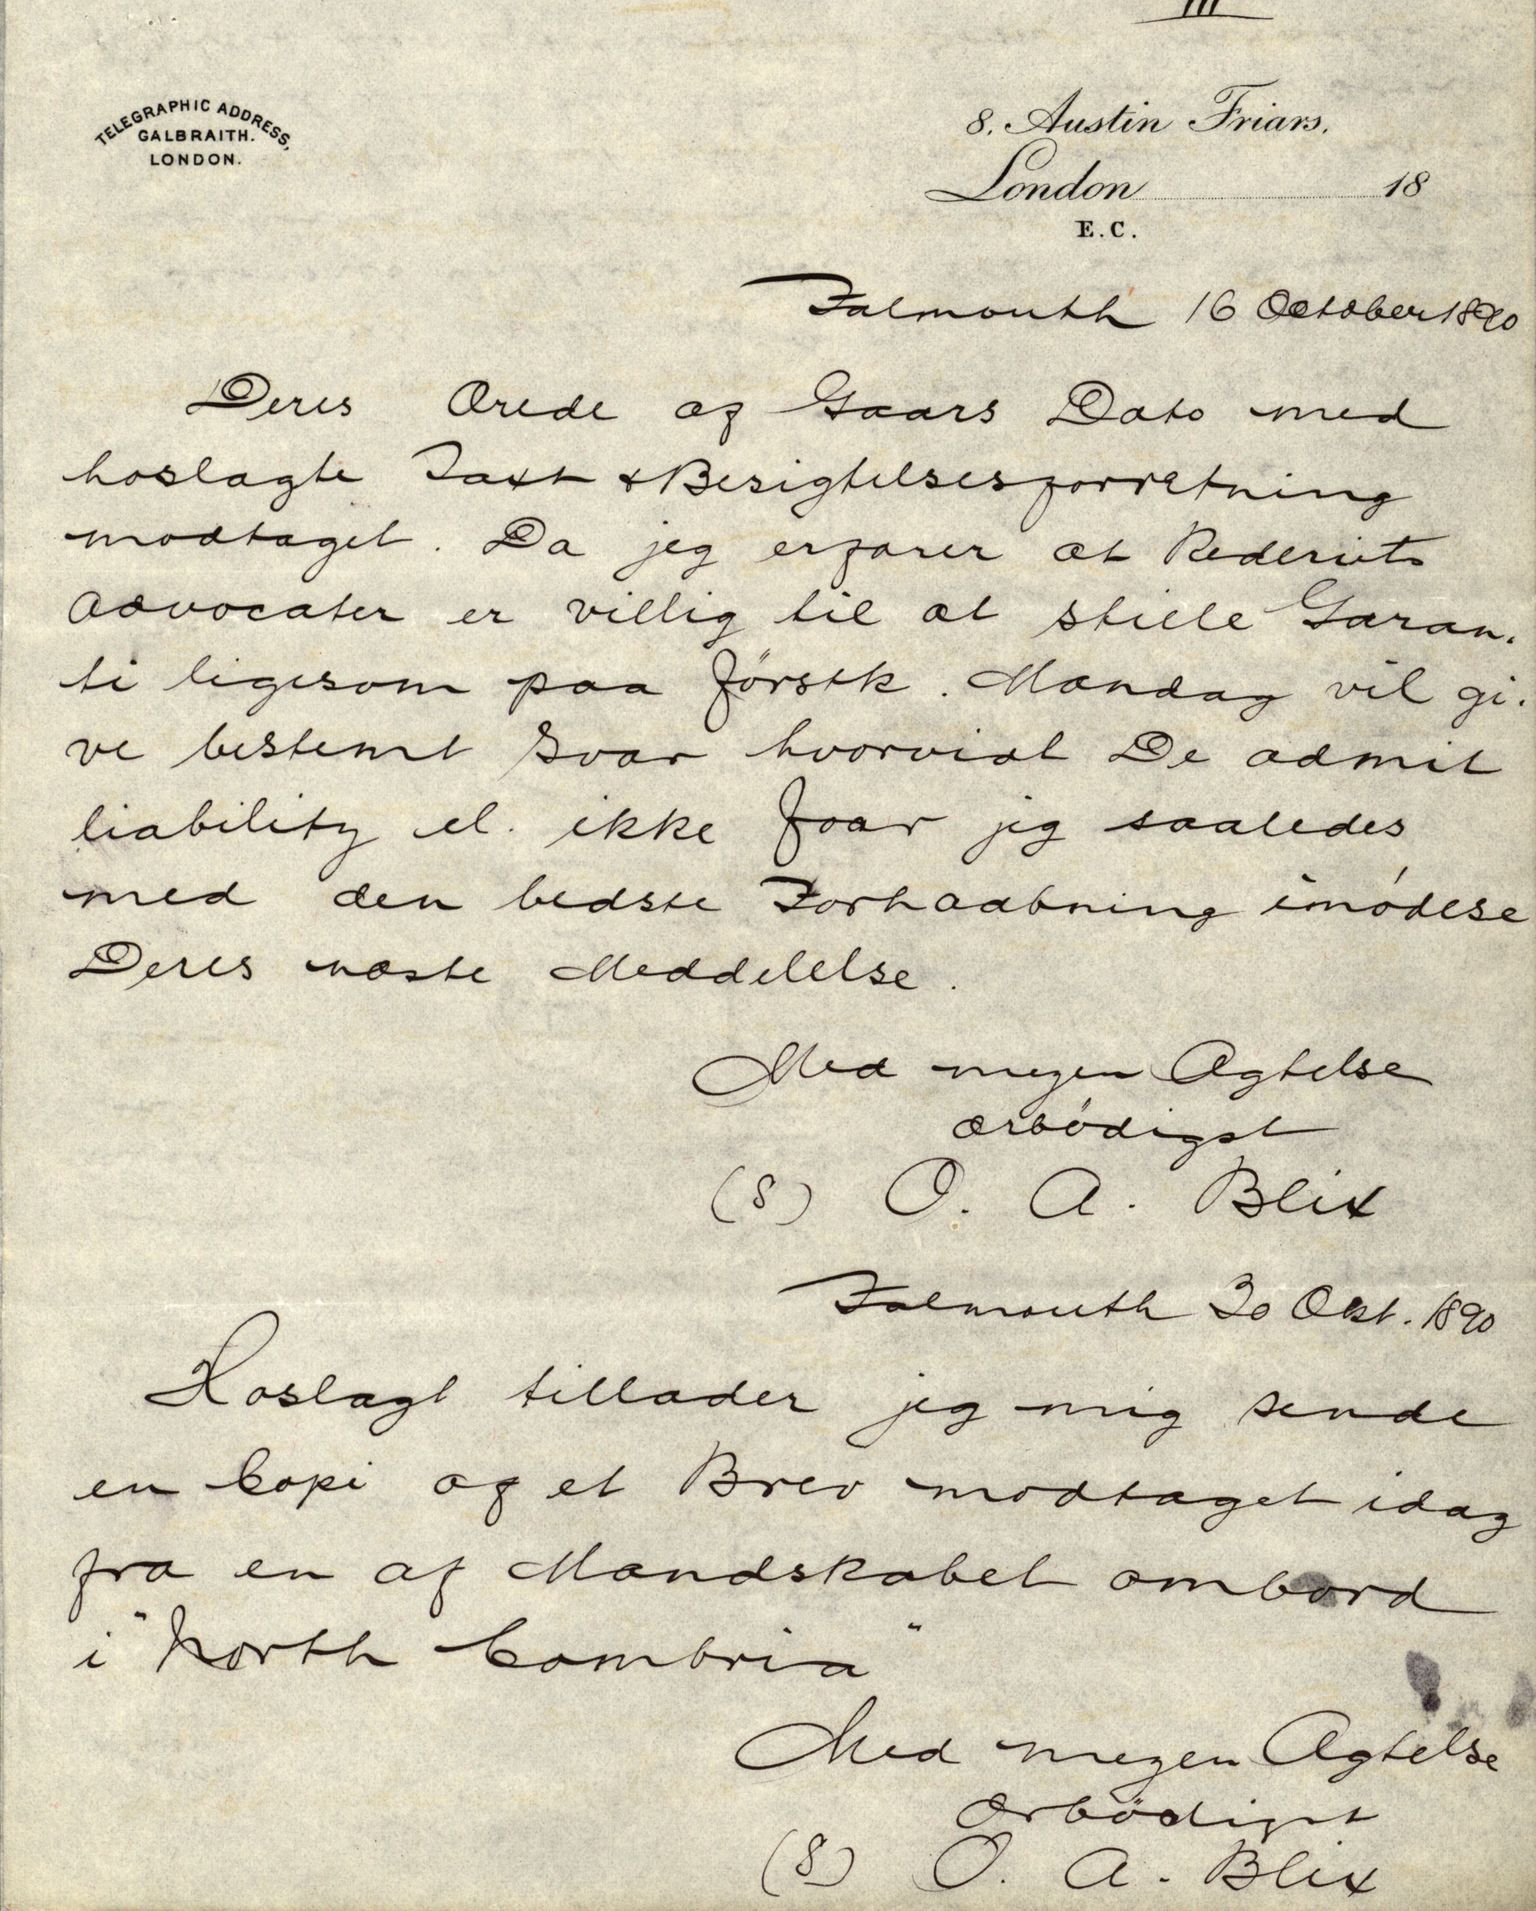 III
TELEGRAPHIC ADDRESS,
GALBRAITH.
LONDON.
8, Austin Friars,
London 18
E.C.
Falmouth 16 October 1890
Deres Ærede af Gaars Dato med
hoslagte Taxt & Besigtelsesforretning
modtaget. Da jeg erfarer at Rederiets
Advocater er villig til at stille Garan-
ti ligesom paa förstk. Mandag vil gi-
ve bestemt Svar hvorvidt De admit
liability el. ikke faar jeg saaledes
med den bedste Forhaabning imödese
Deres næste Meddelelse.
Med megen Agtelse
ærbödigst
(S) O. A. Blix
Falmouth 30 Okt. 1890
Hoslagt tillader jeg mig sende
en Copi af et Brev modtaget idag
fra en af Mandskabet ombord
i "North Cambria"
Med megen Agtelse
ærbödigst
(S) O. A. Blix